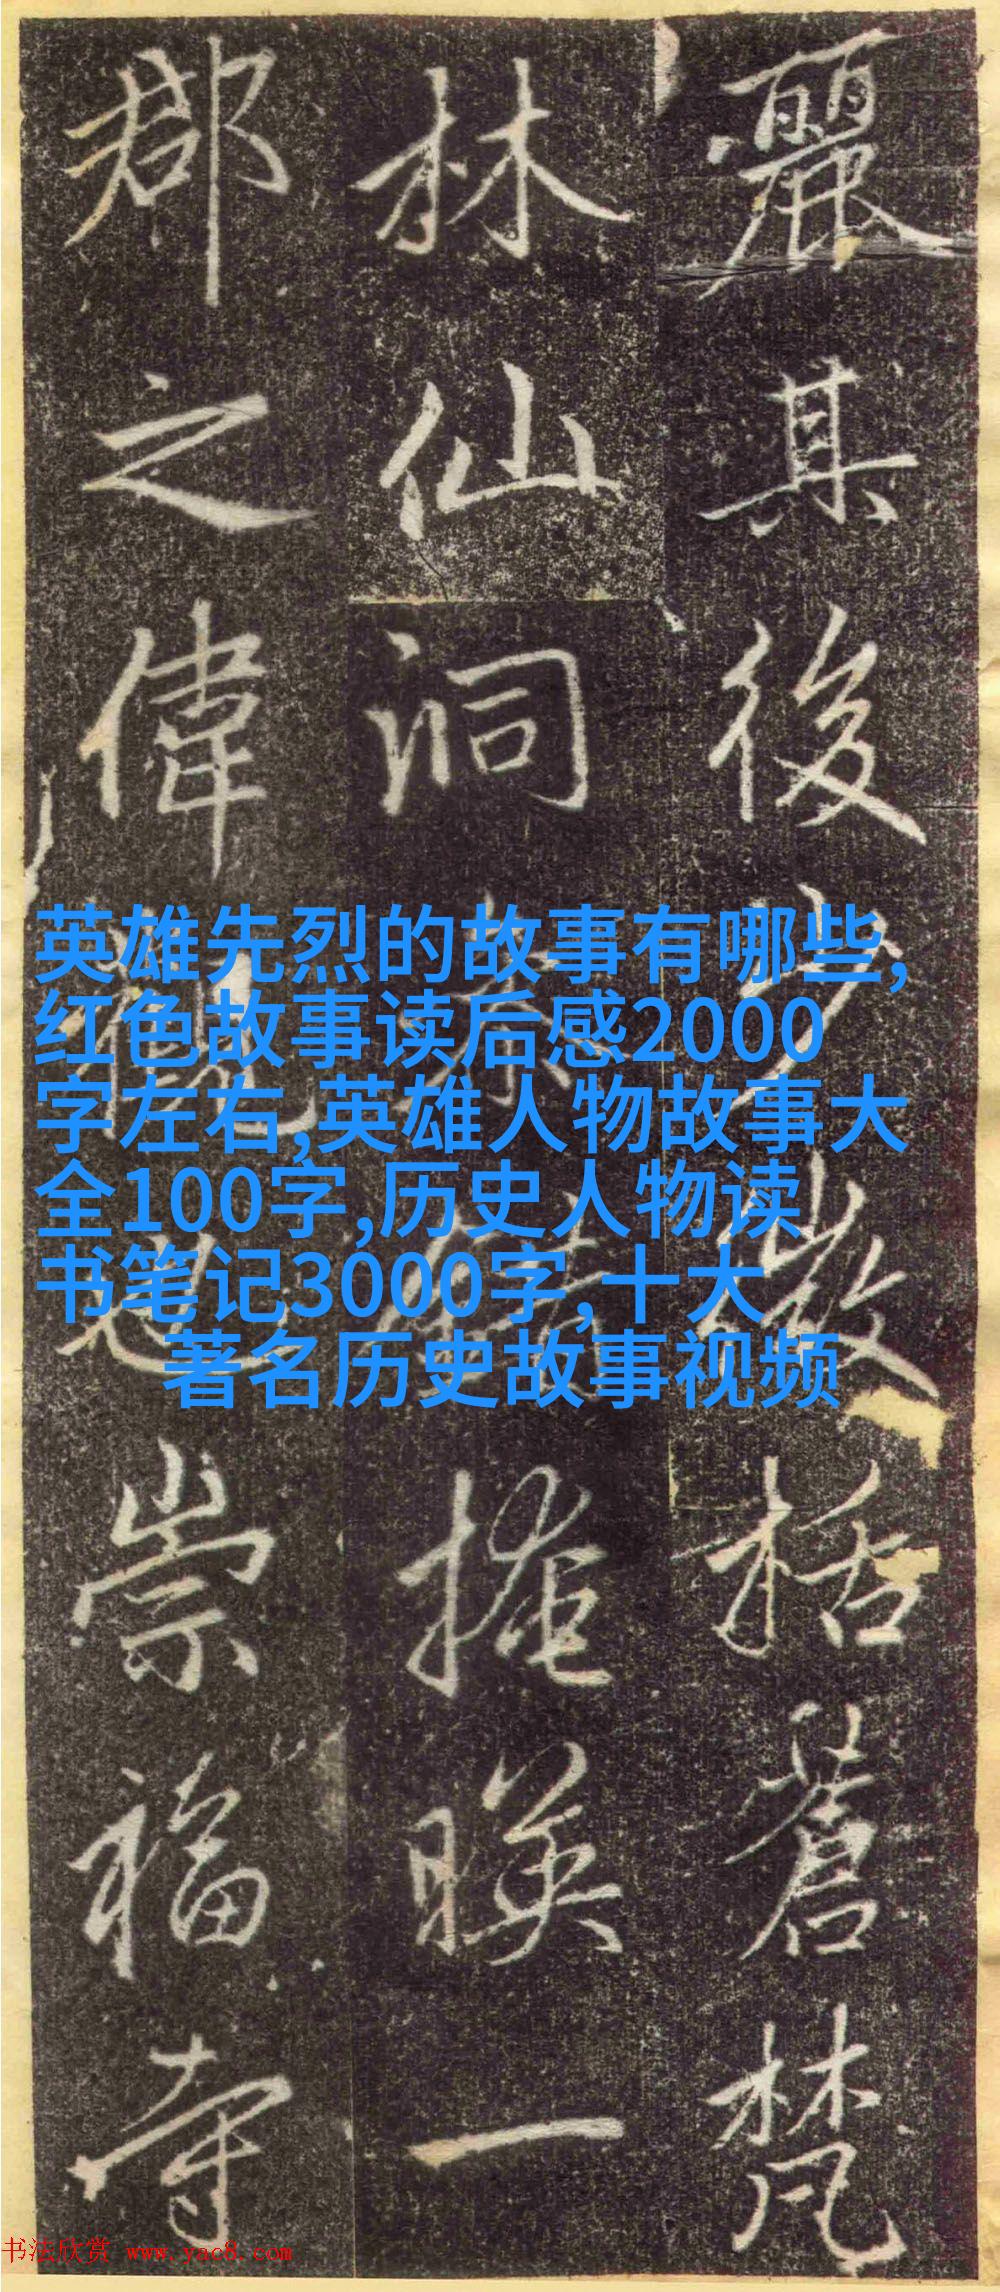 麗其後
括蒼梵
林仙洞
掩暎一
郡之偉
崇福寺
英雄先烈的故事有哪些,
红色故事读后感2000
字左右,英雄人物故事大
全100字,历史人物读
书笔记3000字,十大
著名历史故事视频
书法欣赏 www.yac8.com